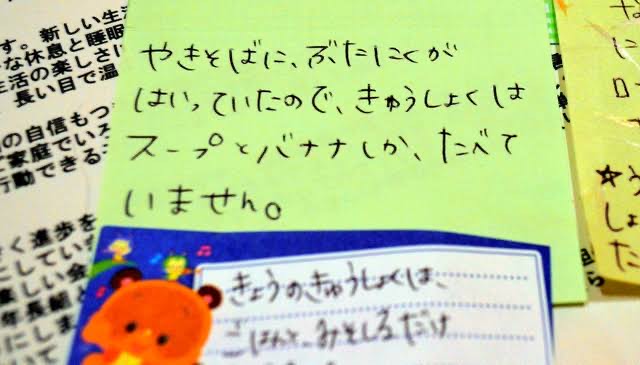 やきそばに、ぶたにくが
はいっていたので、きゅうしょくは
スープとバナナしか、たべて
いません。
きょうのきゅうしょくは、
ごはんと、みそしるだけ
す。新しい生活
な休息と睡眠
生活の楽しさに
長い目で温
の自信もつ
ご家庭でいろ
行動できる
く進歩を
にしてい
楽しい会
年長組と
にしま